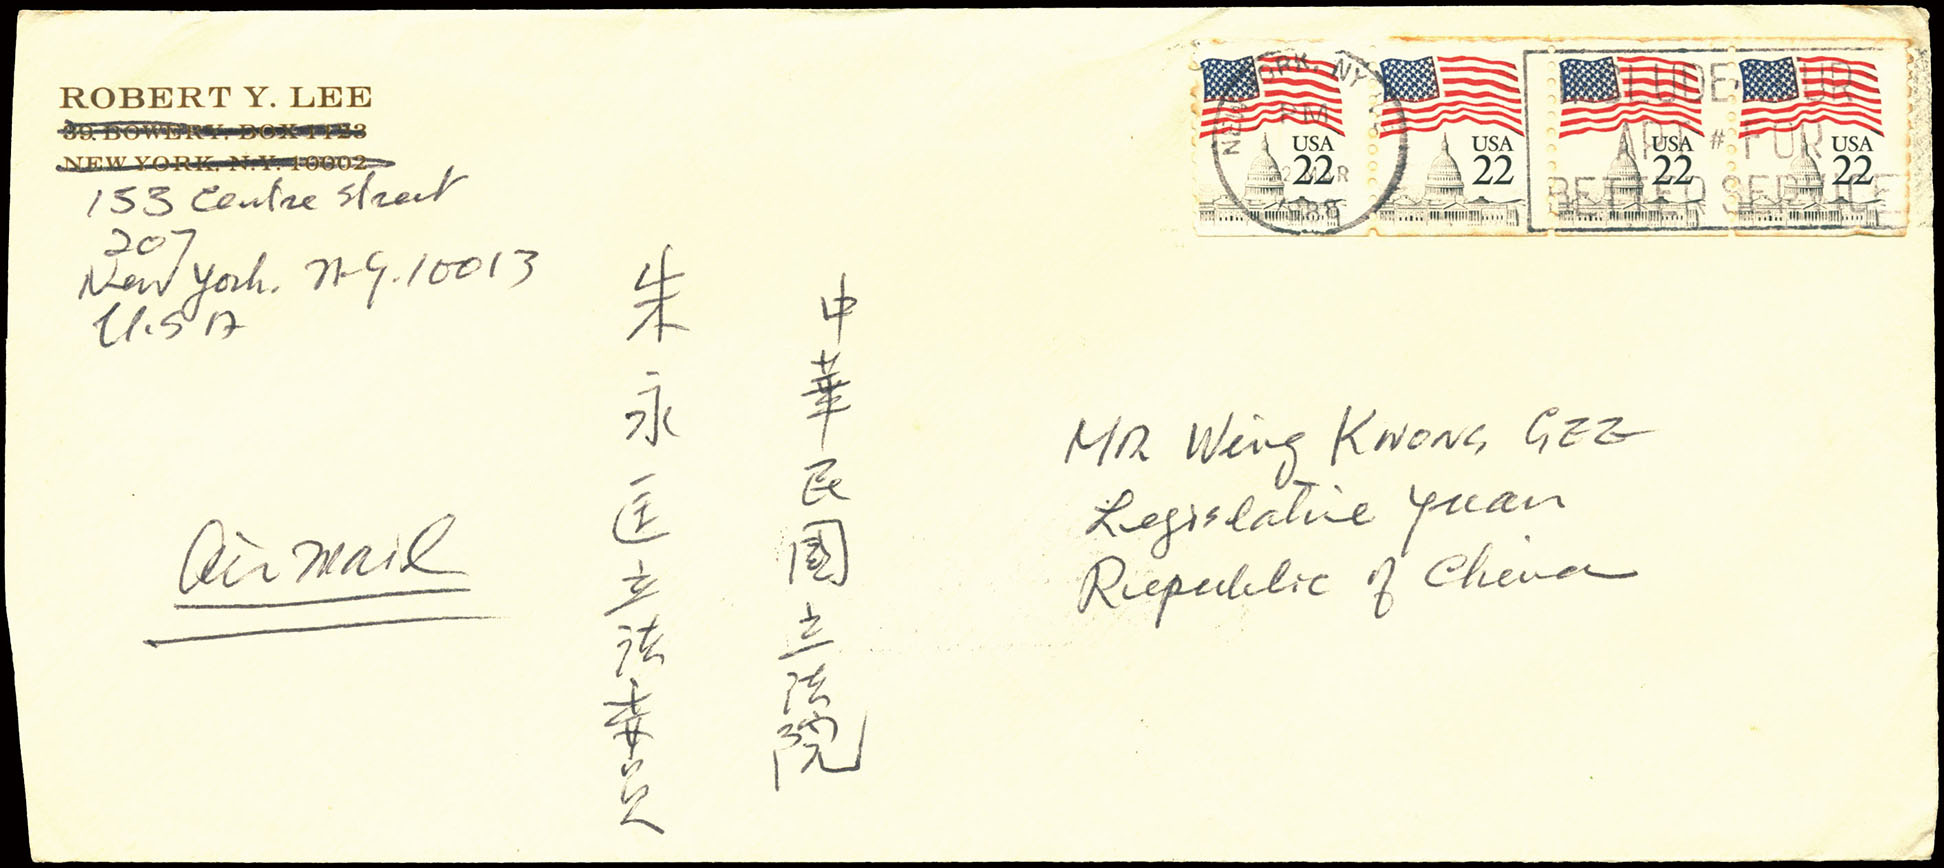 ROBERT Y. LEE
39 BOWERY, BOX 1123
NEW YORK, N.Y. 10002
153 Centre Street
207
New York. N.Y. 10013
U.S A
Air mail
中華民國立法院
朱永匡立法委員
MR Wing KWONG GEE
Legislative Yuan
Republic of China
USA
22
USA
22
USA
22
USA
22
NEW YORK, NY
PM
22 MAR
1988
INCLUDE YOUR
APT # FOR
BETTER SERVICE